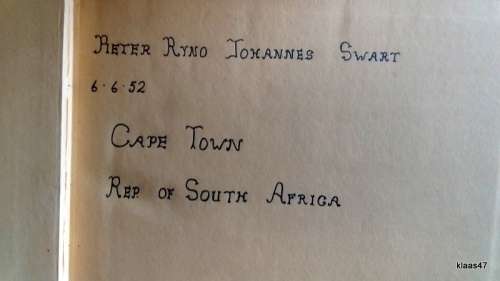 Peter Ryno Johannes Swart
6·6·52
Cape Town
Rep. of South Africa
klaas47